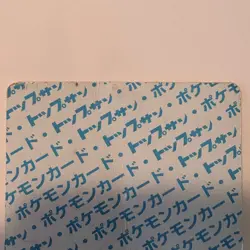 トップサン
ポケモンカード・トップサン・ポケモン
トップサン・ポケモンカード・トップサン
ポケモンカード・トップサン・ポケモンカード
トップサン・ポケモンカード
ポケモンカード